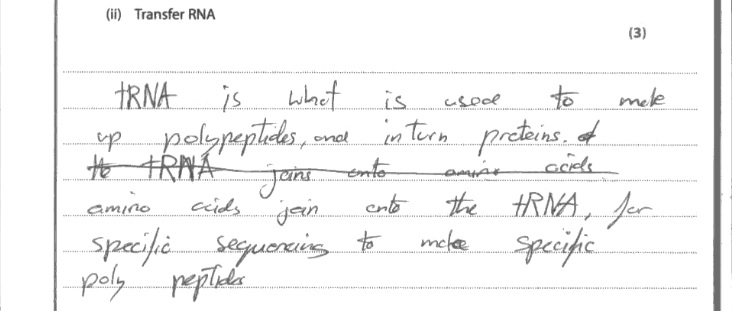 (ii) Transfer RNA
(3)
tRNA is what is used to make
up polypeptides, and in turn proteins.
to tRNA joins onto amino acids
amino acids join onto the tRNA, for
specific sequencing to make specific
poly peptides